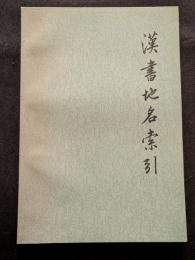 漢書地名索引